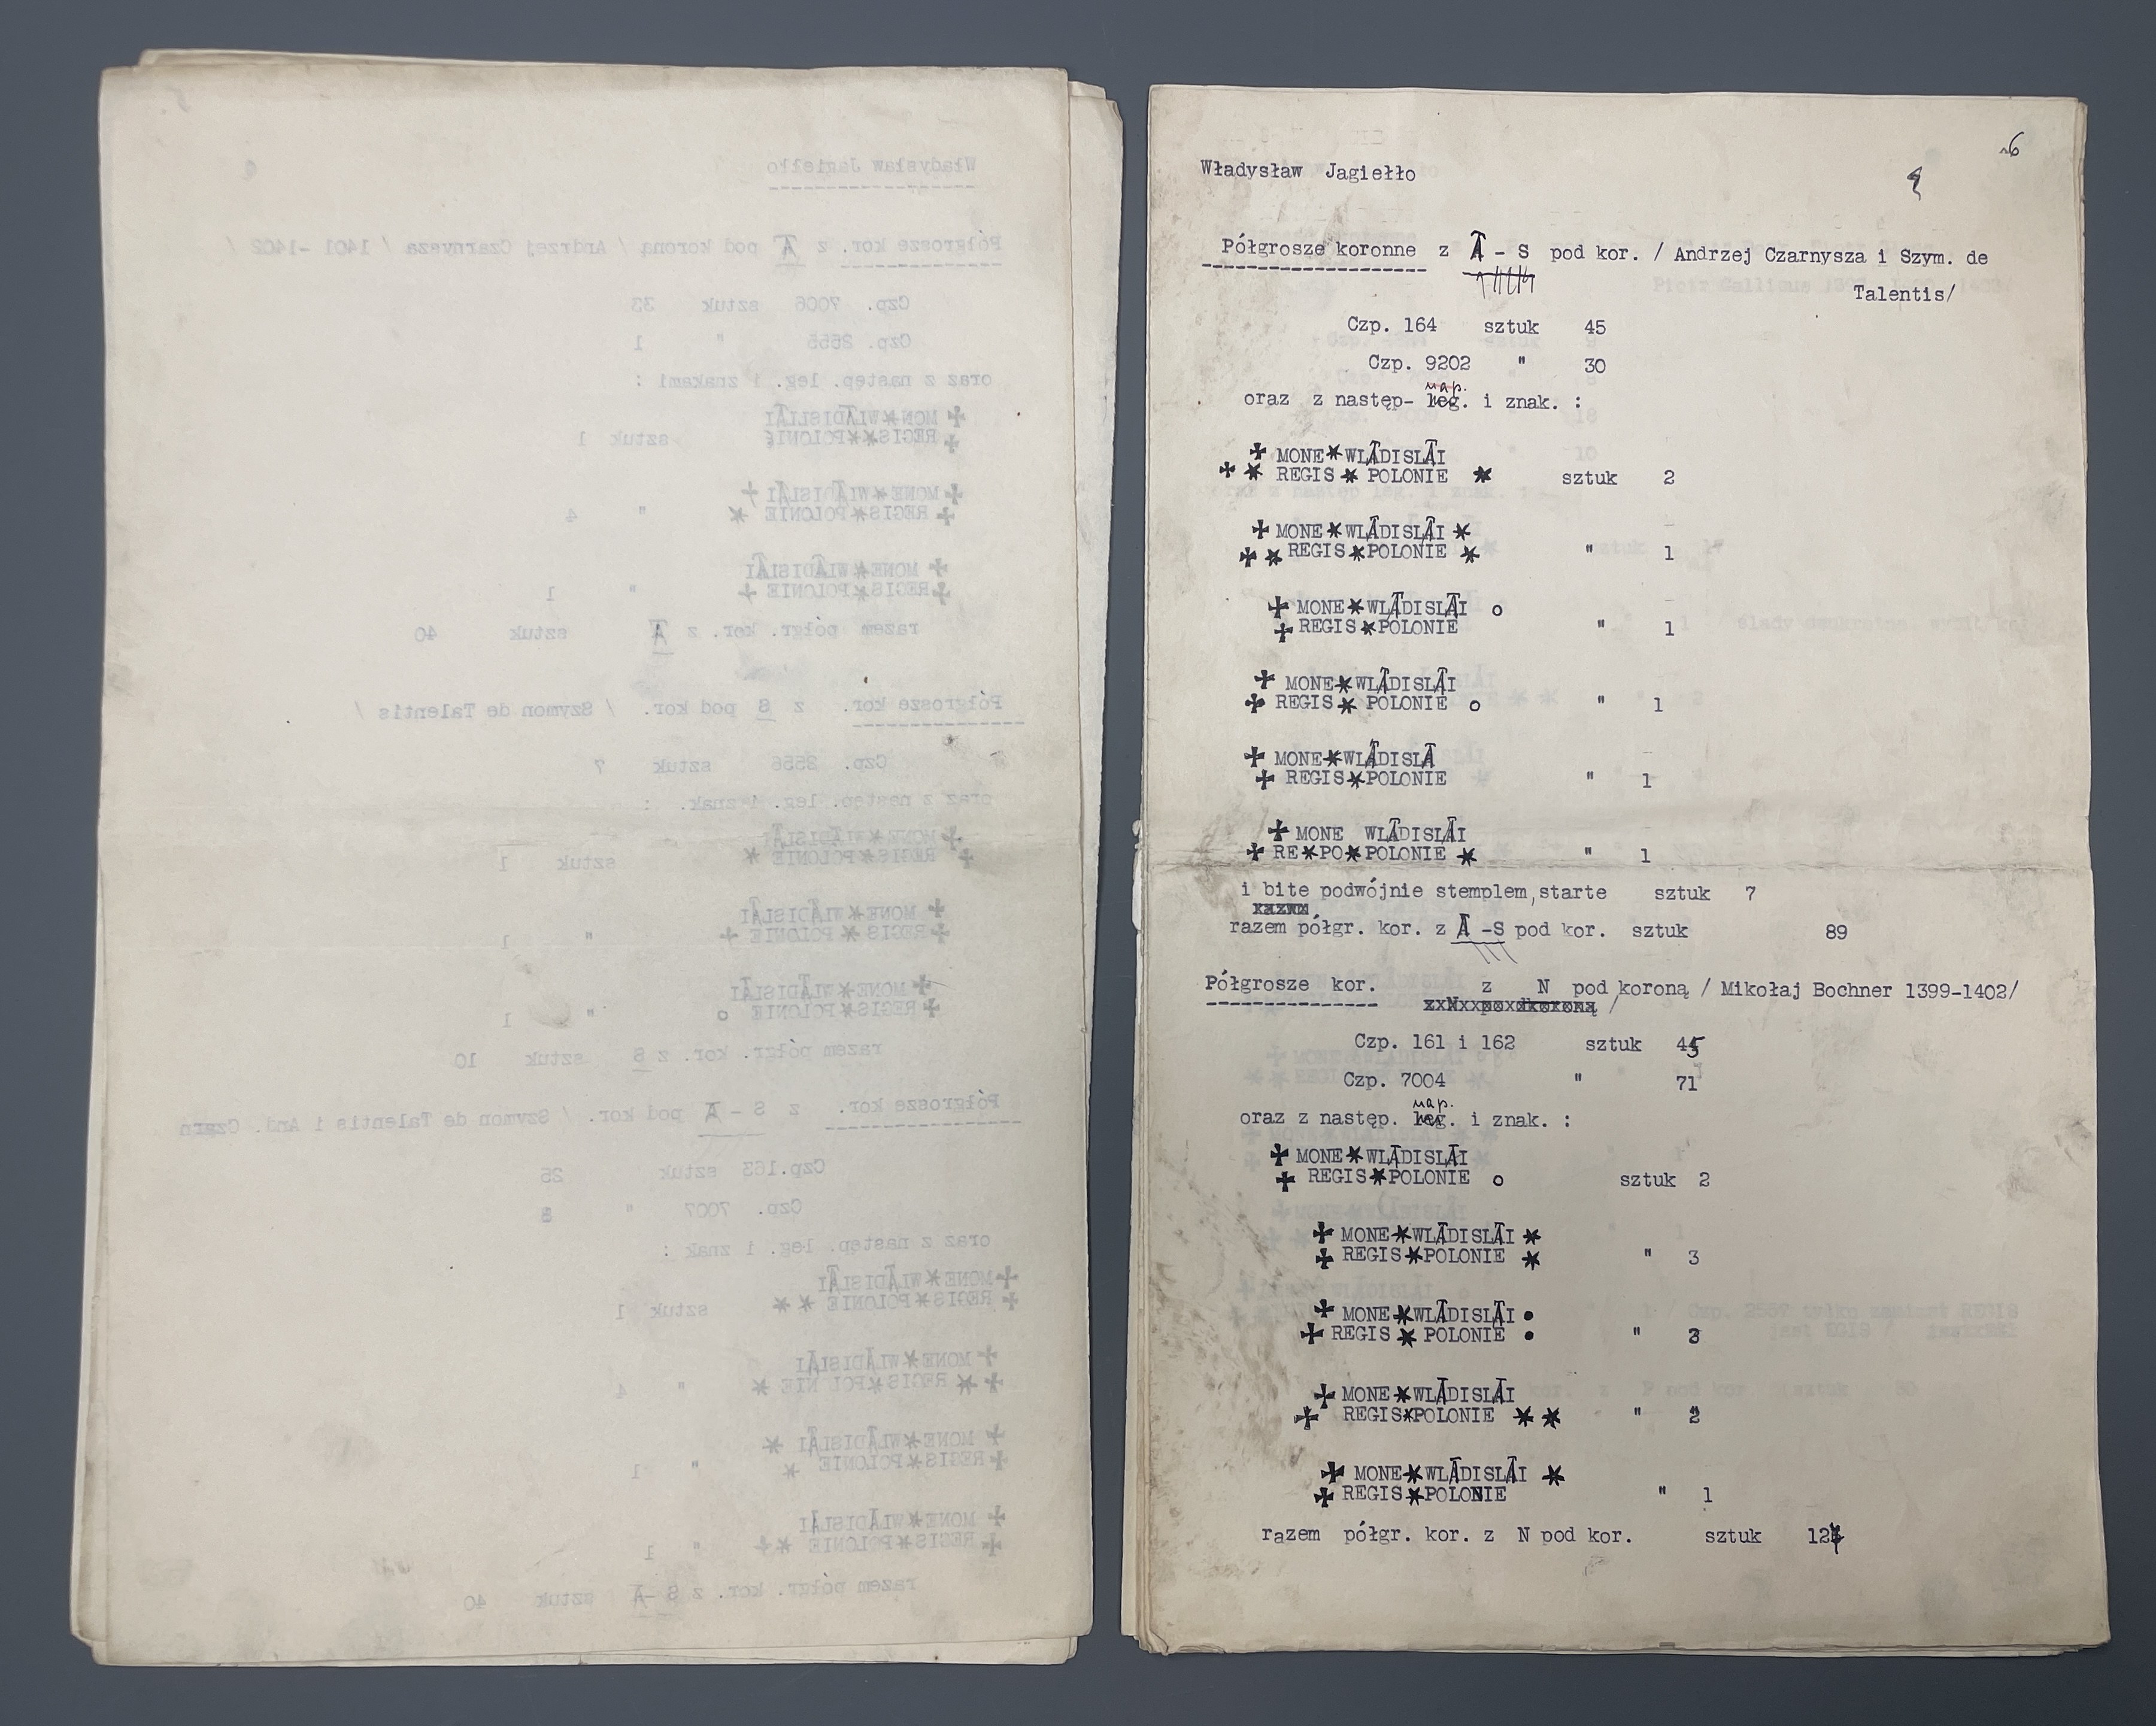 Władysław Jagiełło
Półgrosze kor. z Ā pod koroną / Andrzej Czarnysza / 1401 -1402 /
Czp. 7006 sztuk 33
Czp. 2555 " 1
oraz z następ. leg. i znakami :
✚ MON✶WLĀDISLLĀI
✚ REGIS✶✶POLONIE sztuk 1
✚ MONE✶WLĀDISLĀI ✚
✚ REGIS✶POLONIE ✶ " 4
✚ MONE✶WLĀDISLĀI
✚ REGIS✶POLONIE ✚ " 1
razem półgr. kor. z Ā sztuk 40
Półgrosze kor. z S pod kor. / Szymon de Talentis /
Czp. 2556 sztuk 7
oraz z następ. leg. i znak. :
✚ MONE✶WLĀDISLĀI
✚ REGIS✶POLONIE ✶ sztuk 1
✚ MONE✶WLĀDISLĀI
✚ REGIS✶POLONIE ✚ " 1
✚ MONE✶WLĀDISLĀI
✚ REGIS✶POLONIE o " 1
razem półgr. kor. z S sztuk 10
Półgrosze kor. z S - Ā pod kor. / Szymon de Talentis i And. Czarn
Czp.163 sztuk 25
Czp. 7007 " 8
oraz z następ. leg. i znak :
✚ MONE✶WLĀDISLĀI
✚ REGIS✶POLONIE ✶ ✶ sztuk 1
✚ MONE✶WLĀDISLĀI
✚ ✶ REGIS✶POL NIE ✶ " 4
✚ MONE✶WLĀDISLĀI ✶
✚ REGIS✶POLONIE ✶ " 1
✚ MONE✶WLĀDISLĀI
✚ REGIS✶POLONIE ✶✚ " 1
razem półgr. kor. z S -Ā sztuk 40
6
Władysław Jagiełło
Półgrosze koronne z Ā - S pod kor. / Andrzej Czarnysza i Szym. de
Talentis/
Czp. 164 sztuk 45
Czp. 9202 " 30
nap.
oraz z następ- leg. i znak. :
✚ MONE✶WLĀDISLĀI
✚ ✶ REGIS ✶ POLONIE ✶ sztuk 2
✚ MONE✶WLĀDISLĀI ✶
✚ ✶ REGIS ✶POLONIE ✶ " 1
✚ MONE✶WLĀDISLĀI o
✚ REGIS✶POLONIE " 1
✚ MONE✶WLĀDISLĀI
✚ REGIS✶ POLONIE o " 1
✚ MONE✶WLĀDISLĀ
✚ REGIS✶POLONIE " 1
✚ MONE WLĀDISLĀI
✚ RE✶PO✶POLONIE ✶ " 1
i bite podwójnie stemplem,starte sztuk 7
razem półgr. kor. z Ā -S pod kor. sztuk 89
Półgrosze kor. z N pod koroną / Mikołaj Bochner 1399-1402/
Czp. 161 i 162 sztuk 45
Czp. 7004 " 71
nap.
oraz z następ. leg. i znak. :
✚ MONE✶WLĀDISLĀI
✚ REGIS✶POLONIE o sztuk 2
✚ MONE✶WLĀDISLĀI ✶
✚ REGIS✶POLONIE ✶ " 3
✚ MONE✶WLĀDISLĀI •
✚ REGIS ✶ POLONIE • "
✚ MONE✶WLĀDISLĀI
✚ REGIS✶POLONIE ✶ ✶ " 2
✚ MONE✶WLĀDISLĀI ✶
✚ REGIS✶POLONIE " 1
razem półgr. kor. z N pod kor. sztuk